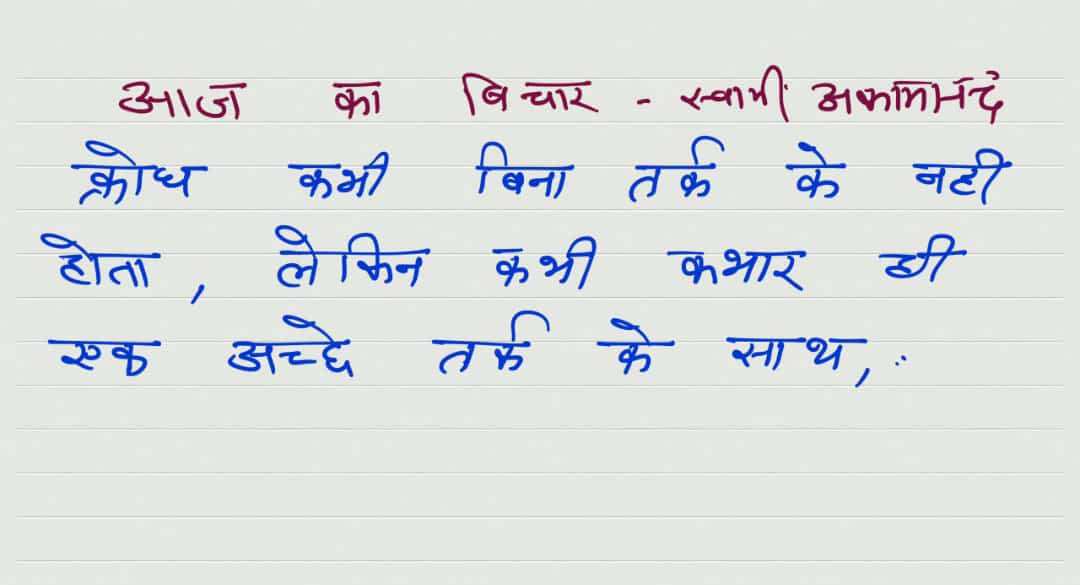 आज का बिचार - स्वामी अकामानंद
क्रोध कभी बिना तर्क के नही
होता, लेकिन कभी कभार ही
एक अच्छे तर्क के साथ,..